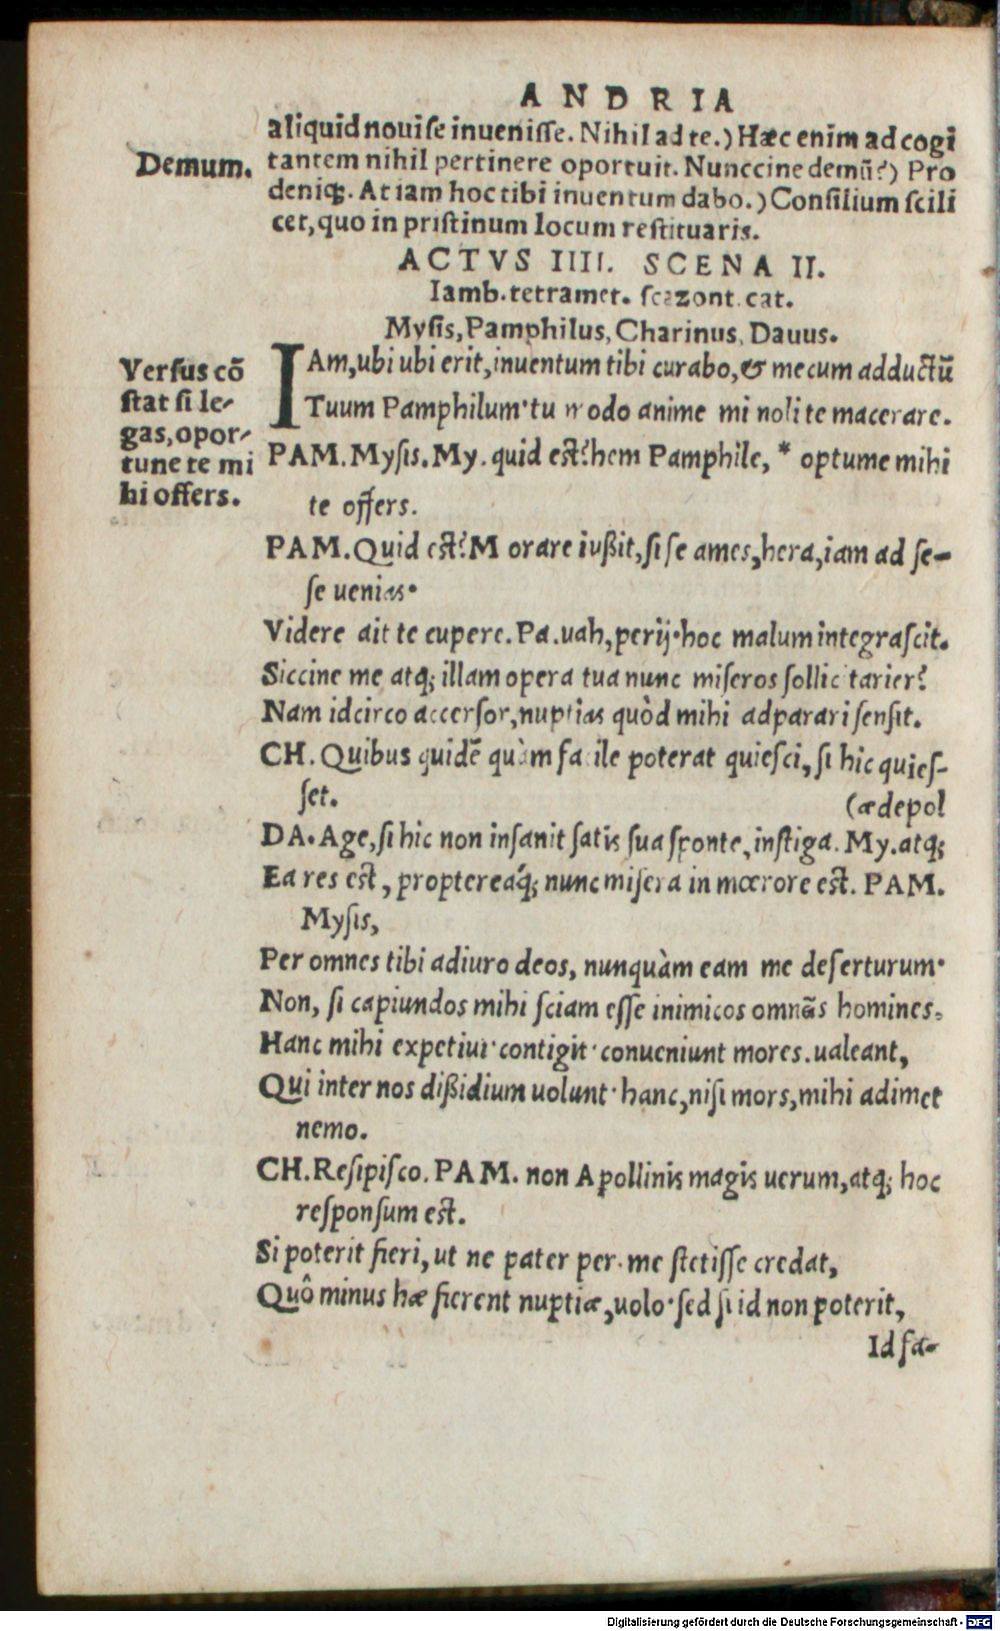 ANDRIA
aliquid noui se inuenisse. Nihil ad te.) Hæc enim ad cogi
Demum.
tantem nihil pertinere oportuit. Nunccine demũ?) Pro
deniqꝫ. At iam hoc tibi inuentum dabo.) Consilium scili
cet, quo in pristinum locum restituaris.
ACTVS IIII. SCENA II.
Iamb. tetramet. scazont. cat.
Mysis, Pamphilus, Charinus, Dauus.
Versus cõ
stat si le-
gas, opor-
tune te mi
hi offers.
IAm, ubi ubi erit, inuentum tibi curabo, & mecum adductũ
Tuum Pamphilum· tu modo anime mi noli te macerare.
PAM. Mysis. My. quid est? hem Pamphile, * optume mihi
te offers.
PAM. Quid est? M orare iußit, si se ames, hera, iam ad se-
se uenias·
Videre ait te cupere. Pa. uah, perij· hoc malum integrascit.
Siccine me atqꝫ illam opera tua nunc miseros sollicitarier?
Nam idcirco accersor, nuptias quòd mihi adparari sensit.
CH. Quibus quidẽ quàm facile poterat quiesci, si hic quies-
set. (ædepol
DA. Age, si hic non insanit satis sua sponte, instiga. My. atqꝫ
Ea res est, proptereáqꝫ nunc misera in mœrore est. PAM.
Mysis,
Per omnes tibi adiuro deos, nunquàm eam me deserturum·
Non, si capiundos mihi sciam esse inimicos omnẽs homines.
Hanc mihi expetiui· contigit· conueniunt mores. ualeant,
Qui inter nos dißidium uolunt· hanc, nisi mors, mihi adimet
nemo.
CH. Resipisco. PAM. non Apollinis magis uerum, atqꝫ hoc
responsum est.
Si poterit fieri, ut ne pater per me stetisse credat,
Quô minus hæ fierent nuptiæ, uolo· sed si id non poterit,
Id fa-
Digitalisierung gefördert durch die Deutsche Forschungsgemeinschaft - DFG